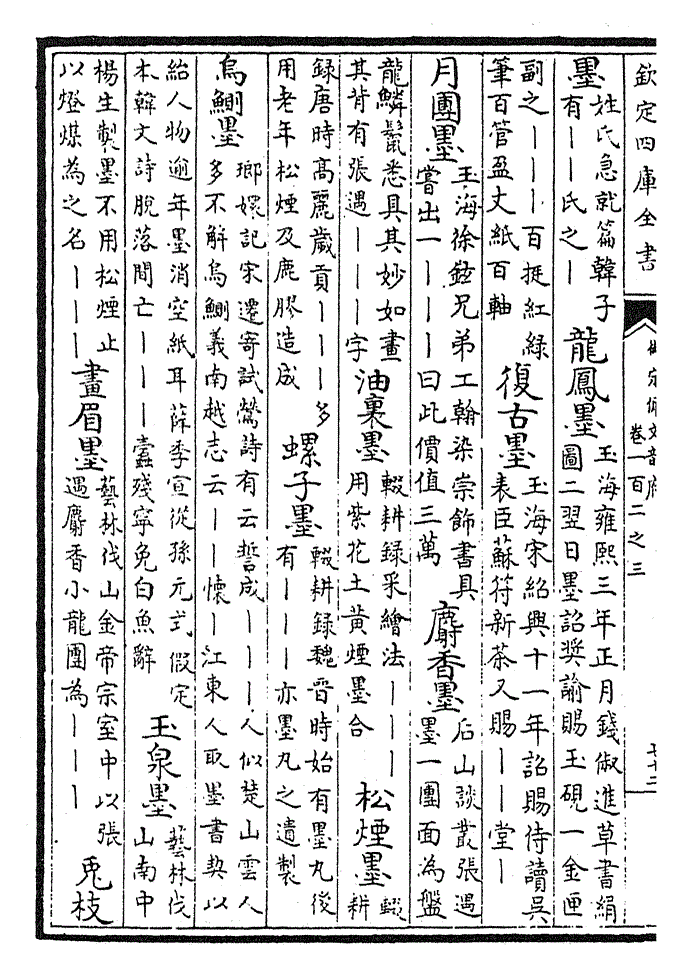 欽定四庫全書
卷一百二之三
墨
姓氏急就篇韓子
有——氏之—
龍鳳墨
玉海雍熙三年正月錢俶進草書絹
圖二翌日墨詔奬諭賜玉硯一金匣
副之———百挺紅綠
筆百管盈丈紙百軸
復古墨
玉海宋紹興十一年詔賜侍讀吳
表臣蘇符新茶又賜——堂—
月團墨
玉海徐鉉兄弟工翰染崇飾書具
嘗出一———曰此價值三萬
麝香墨
后山談叢張遇
墨一團面為盤
龍鱗鬛悉具其妙如畫
其背有張遇———字
油裏墨
輟耕録采繪法———
用紫花土黄煙墨合
松煙墨
輟
耕
録唐時高麗歲貢———多
用老年松煙及鹿膠造成
螺子墨
輟耕録魏晉時始有墨丸後
有———亦墨丸之遺製
烏鰂墨
瑯嬛記宋遷寄試鶯詩有云誓成———人似楚山雲人
多不解烏鰂義南越志云——懷—江東人取墨書契以
紿人物逾年墨消空紙耳薛季宣從孫元式假定
本韓文詩脫落間亡———蠧殘寧免白魚辭
玉泉墨
藝林伐
山南中
楊生製墨不用松煙止
以燈煤為之名———
畫眉墨
藝林伐山金帝宗室中以張
遇麝香小龍團為———
兎枝